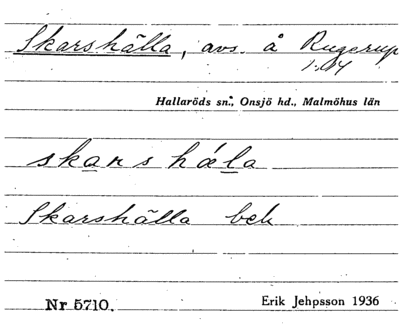 Skarshälla, avs. å Rugerup
1:14
Hallaröds sn., Onsjö hd., Malmöhus län
skarshála
Skarshälla bek
Nr 5710.
Erik Jehpsson 1936